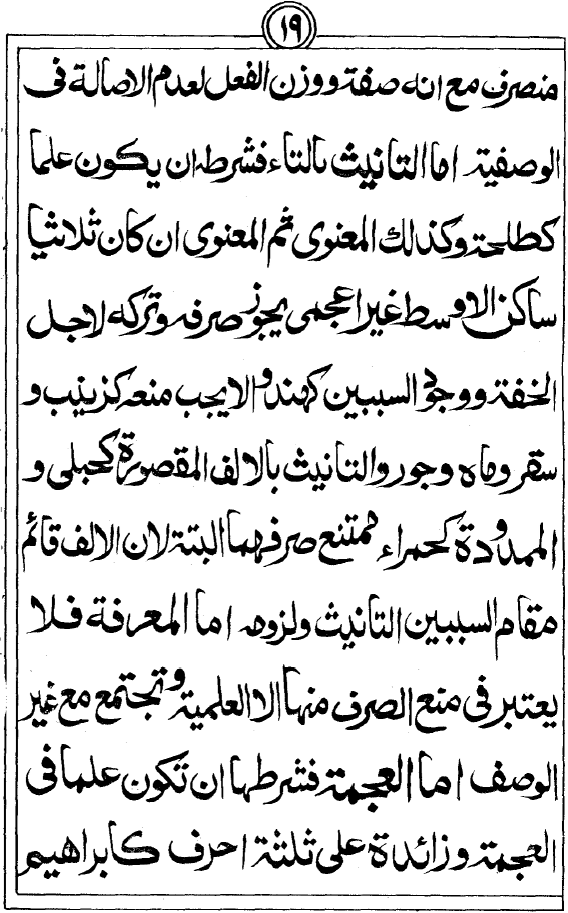 ١٩
منصرف مع انه صفة ووزن الفعل لعدم الاصالة فى
الوصفية اما التانيث بالتاء فشرطه ان يكون علما
كطلحة وكذلك المعنوى ثم المعنوى ان كان ثلاثيا
ساكن الاوسط غير اعجمى يجوز صرفه وتركه لاجل
الخفة ووجود السببين كهند والا يجب منعه كزينب و
سقر وماه وجور والتانيث بالالف المقصورة كحبلى و
الممدودة كحمراء ممتنع صرفهما البتة لان الالف قائم
مقام السببين التانيث ولزومه اما المعرفة فلا
يعتبر فى منع الصرف منها الا العلمية وتجتمع مع غير
الوصف اما العجمة فشرطها ان تكون علما فى
العجمة وزائدة على ثلثة احرف كابراهيم